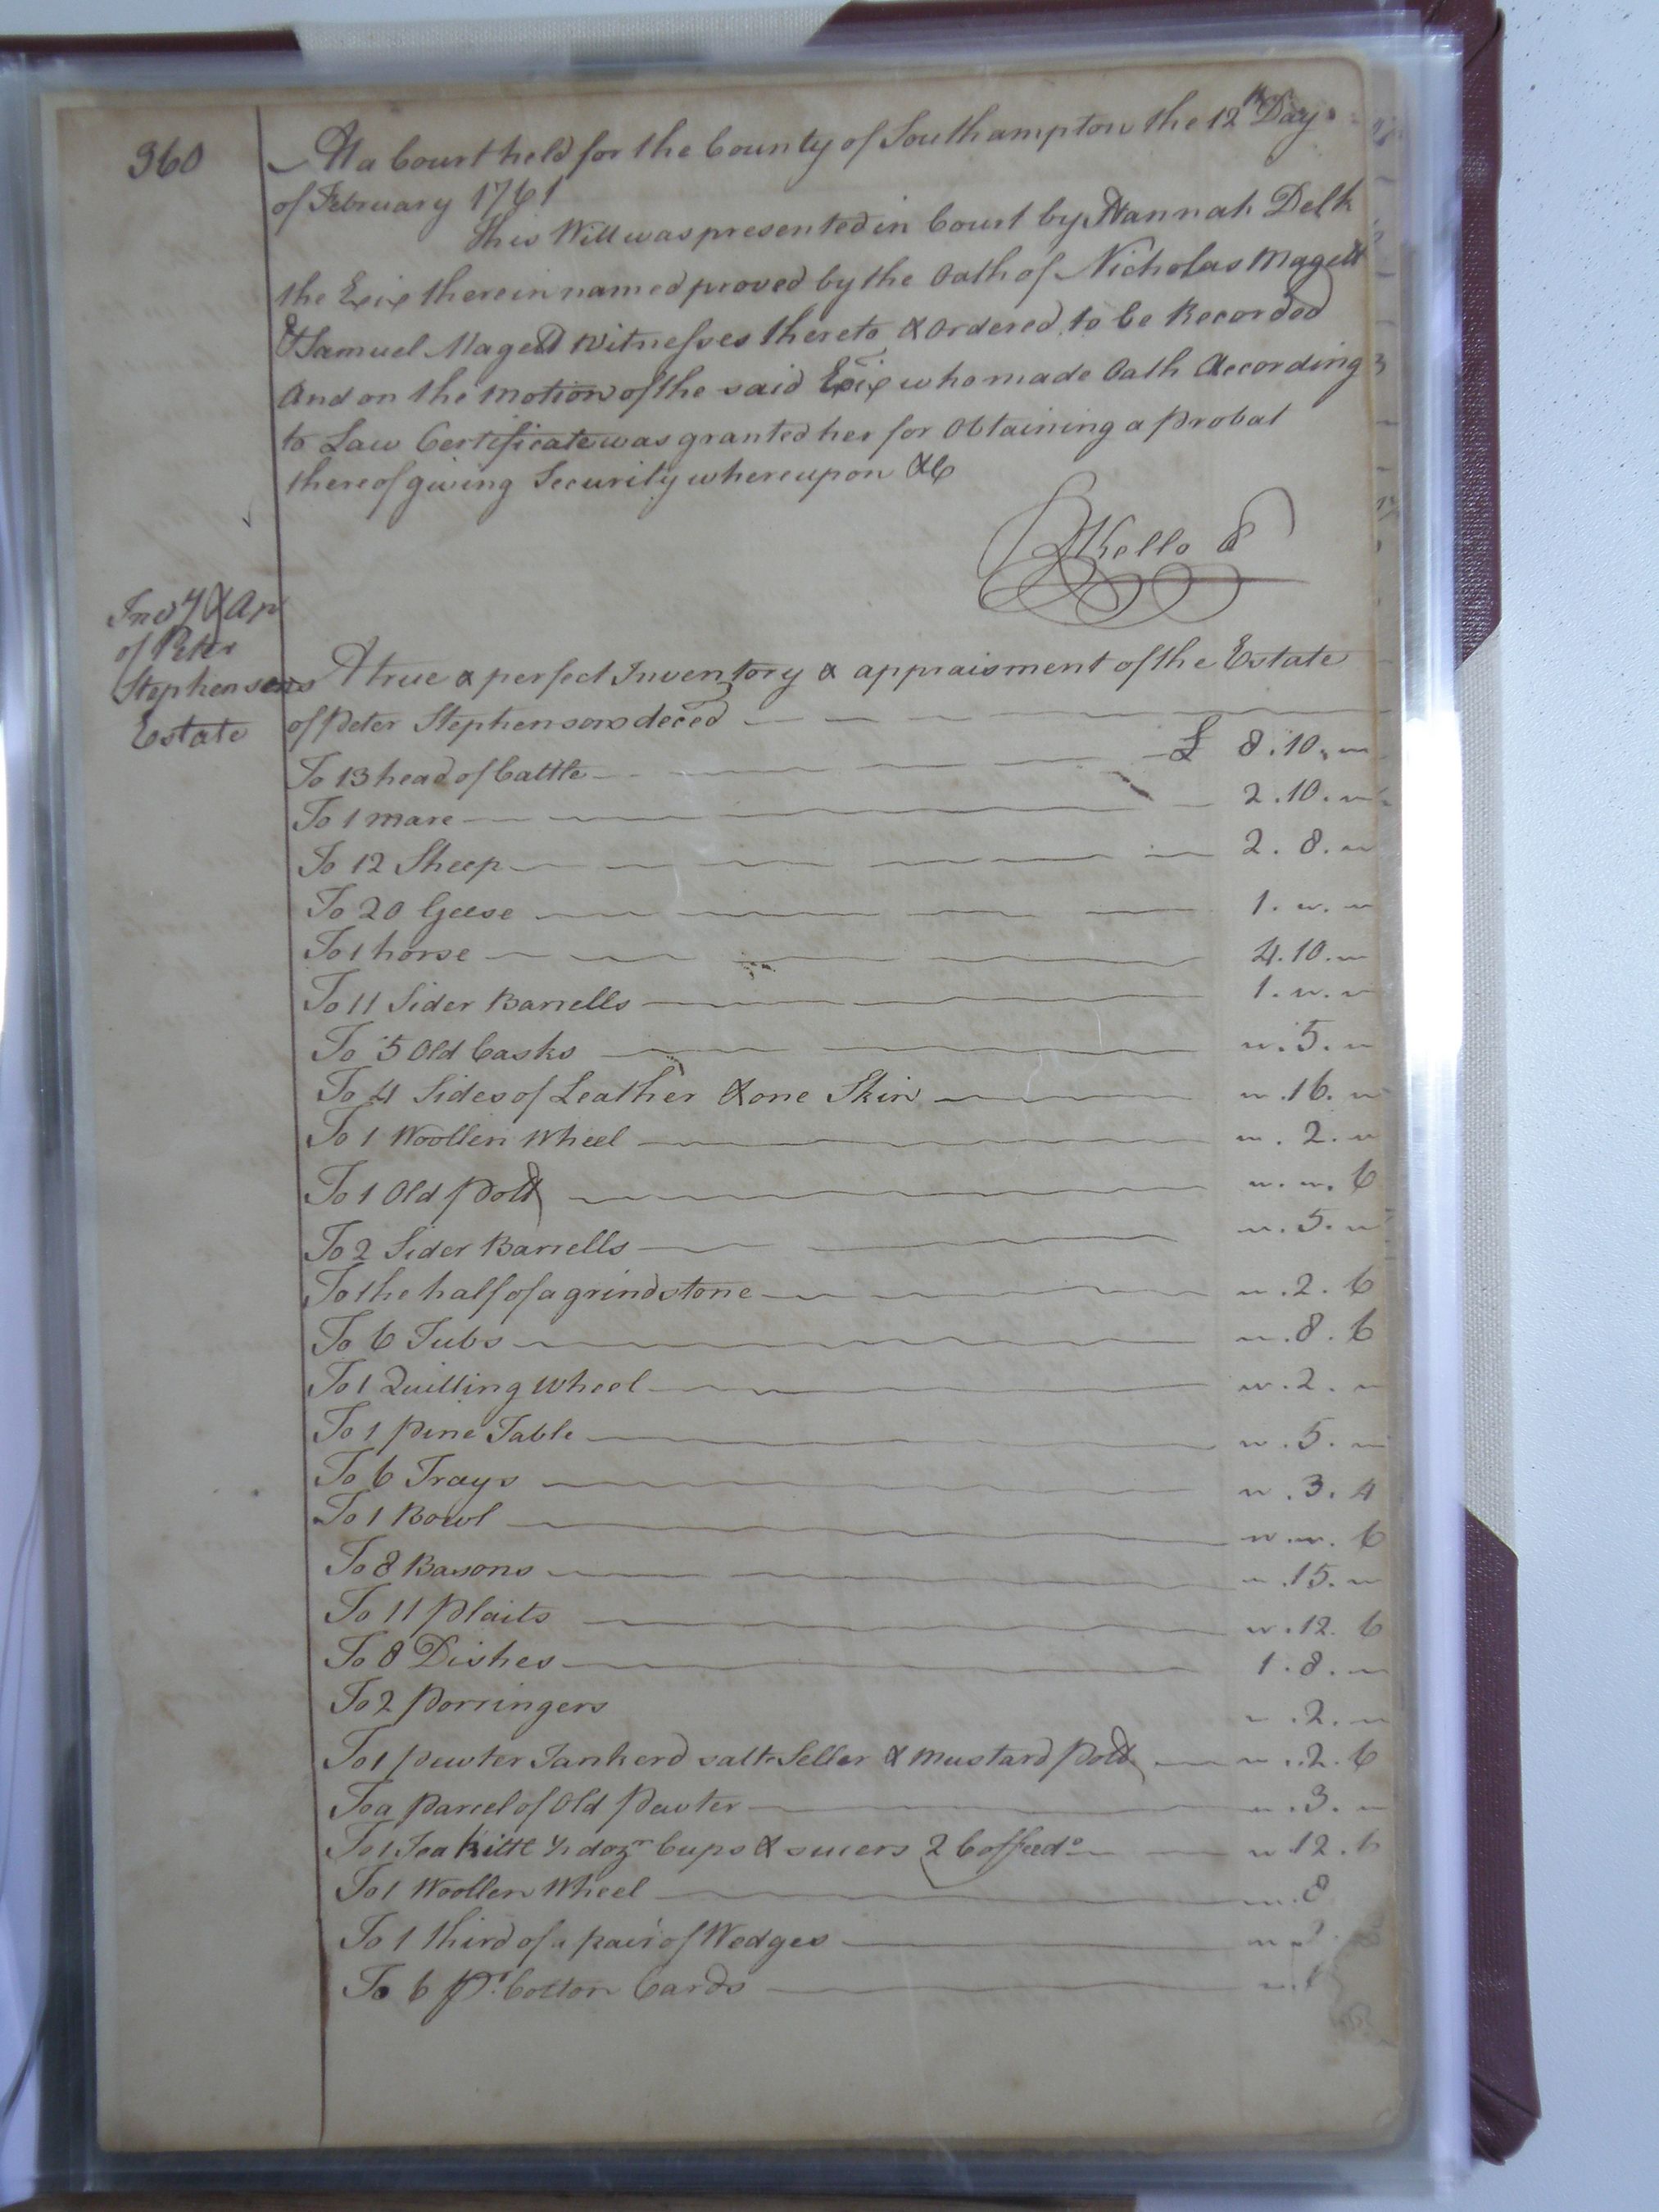 360
At a Court held for the County of Southampton the 12th Day
of February 1761
This Will was presented in Court by Hannah Delk
the Exix therein named proved by the Oath of Nicholas Magett
& Samuel Magett witnesses thereto & Ordered to be Recorded
And on the motion of the said Exix who made Oath According
to Law Certificate was granted her for Obtaining a probat
thereof giving Security whereupon &C
RKello
Invy & Ap
of Peter
Stephensons
Estate
A true & perfect Inventory & appraisment of the Estate
of Peter Stephensons deced
To 13 head of Cattle £ 8.10.〃
To 1 mare 2.10.〃
To 12 Sheep 2.8.〃
To 20 Geese 1.〃.〃
To 1 horse 4.10.〃
To 11 Sider Barrells 1.〃.〃
To 5 Old Casks 〃.5.〃
To 4 Sides of Leather & one Skin 〃.16.〃
To 1 Woollen Wheel 〃.2.〃
To 1 Old pott 〃.〃.6
To 2 Sider Barrells 〃.5.〃
To the half of a grindstone 〃.2.6
To 6 Tubs 〃.8.6
To 1 Quilling Wheel 〃.2.〃
To 1 pine Table 〃.5.〃
To 6 Trays 〃.3.4
To 1 Bowl 〃.〃.6
To 8 Basons 〃.15.〃
To 11 plaits 〃.12.6
To 8 Dishes 1.8.〃
To 2 porringers 〃.2.〃
To 1 pewter Tankerd salt Seller & mustard pott 〃.2.6
To a parcel of Old pewter 〃.3.〃
To 1 Tea Kittl ½ dozn Cups & sucers 2 Coffee do 〃.12.6
To 1 Woollen Wheel 〃.8
To 1 third of a pair of Wedges
To 6 pr Cotton Cards